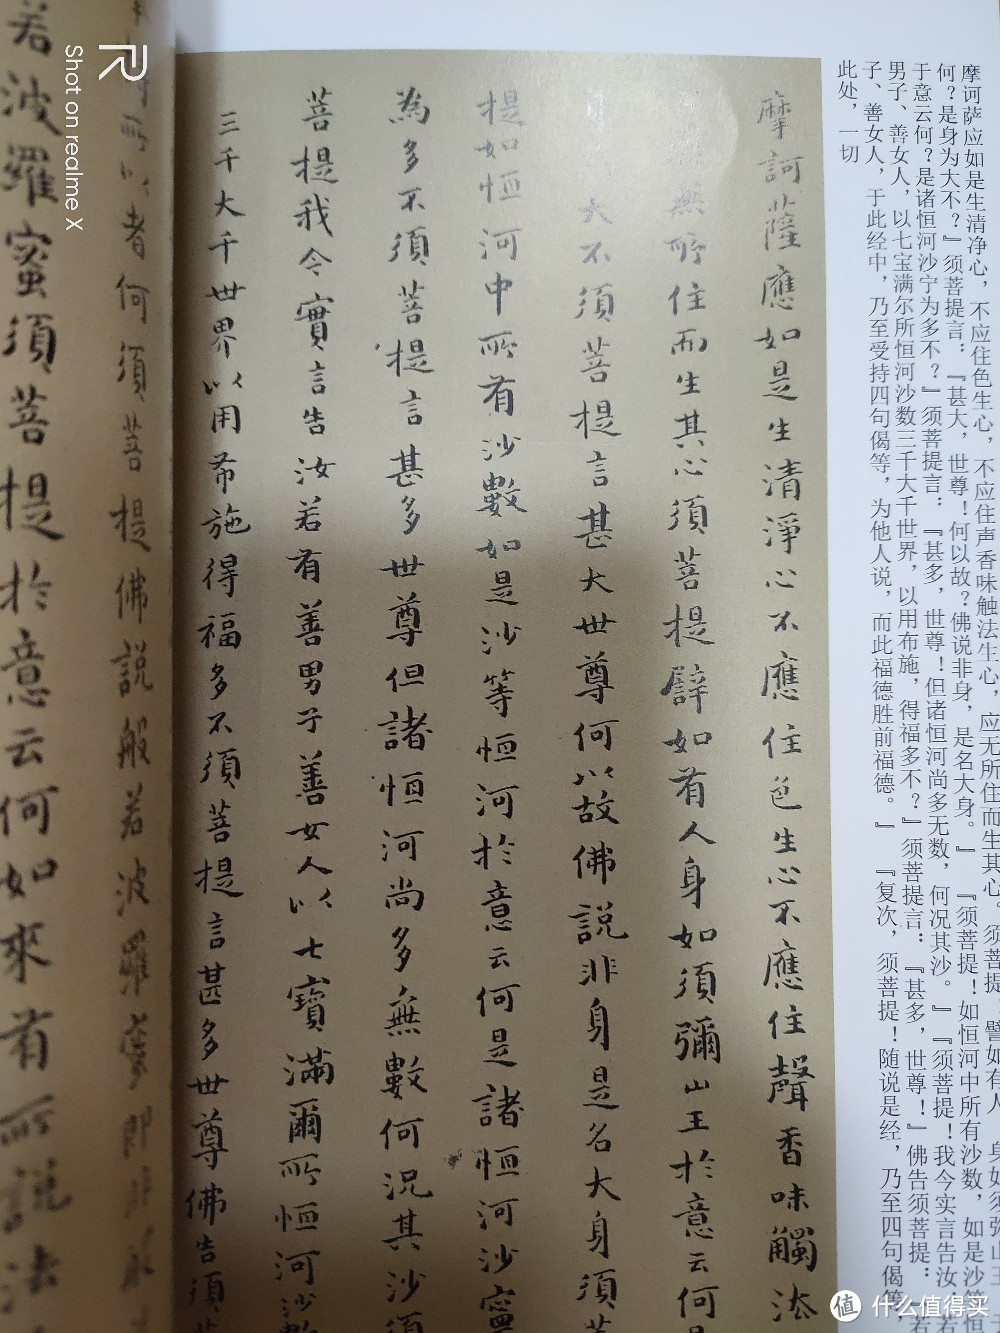 摩诃萨应如是生清净心，不应住色生心，不应住声香味触法生心，应无所住而生其心。须菩提！譬如有人，身如须弥山王
何？是身为大不？』须菩提言：『甚大，世尊！何以故？佛说非身，是名大身。』『须菩提！如恒河中所有沙数，如是沙等恒
于意云何？是诸恒河沙宁为多不？』须菩提言：『甚多，世尊！但诸恒河尚多无数，何况其沙。』『须菩提！我今实言告汝！若
男子、善女人，以七宝满尔所恒河沙数三千大千世界，以用布施，得福多不？』须菩提言：『甚多，世尊！』佛告须菩提：
子、善女人，于此经中，乃至受持四句偈等，为他人说，而此福德胜前福德。』『复次，须菩提！随说是经，乃至四句偈等，
此处，一切
摩訶薩應如是生清淨心不應住色生心不應住聲香味觸法
無所住而生其心須菩提譬如有人身如須彌山王於意云何
大不須菩提言甚大世尊何以故佛說非身是名大身須菩
提如恒河中所有沙數如是沙等恒河於意云何是諸恒河沙寧
為多不須菩提言甚多世尊但諸恒河尚多無數何況其沙須
菩提我今實言告汝若有善男子善女人以七寶滿爾所恒河沙數
三千大千世界以用布施得福多不須菩提言甚多世尊佛告須菩
所以者何須菩提佛說般若波羅蜜即非般
若波羅蜜須菩提於意云何如來有所說法
Shot on realme X
值 什么值得买